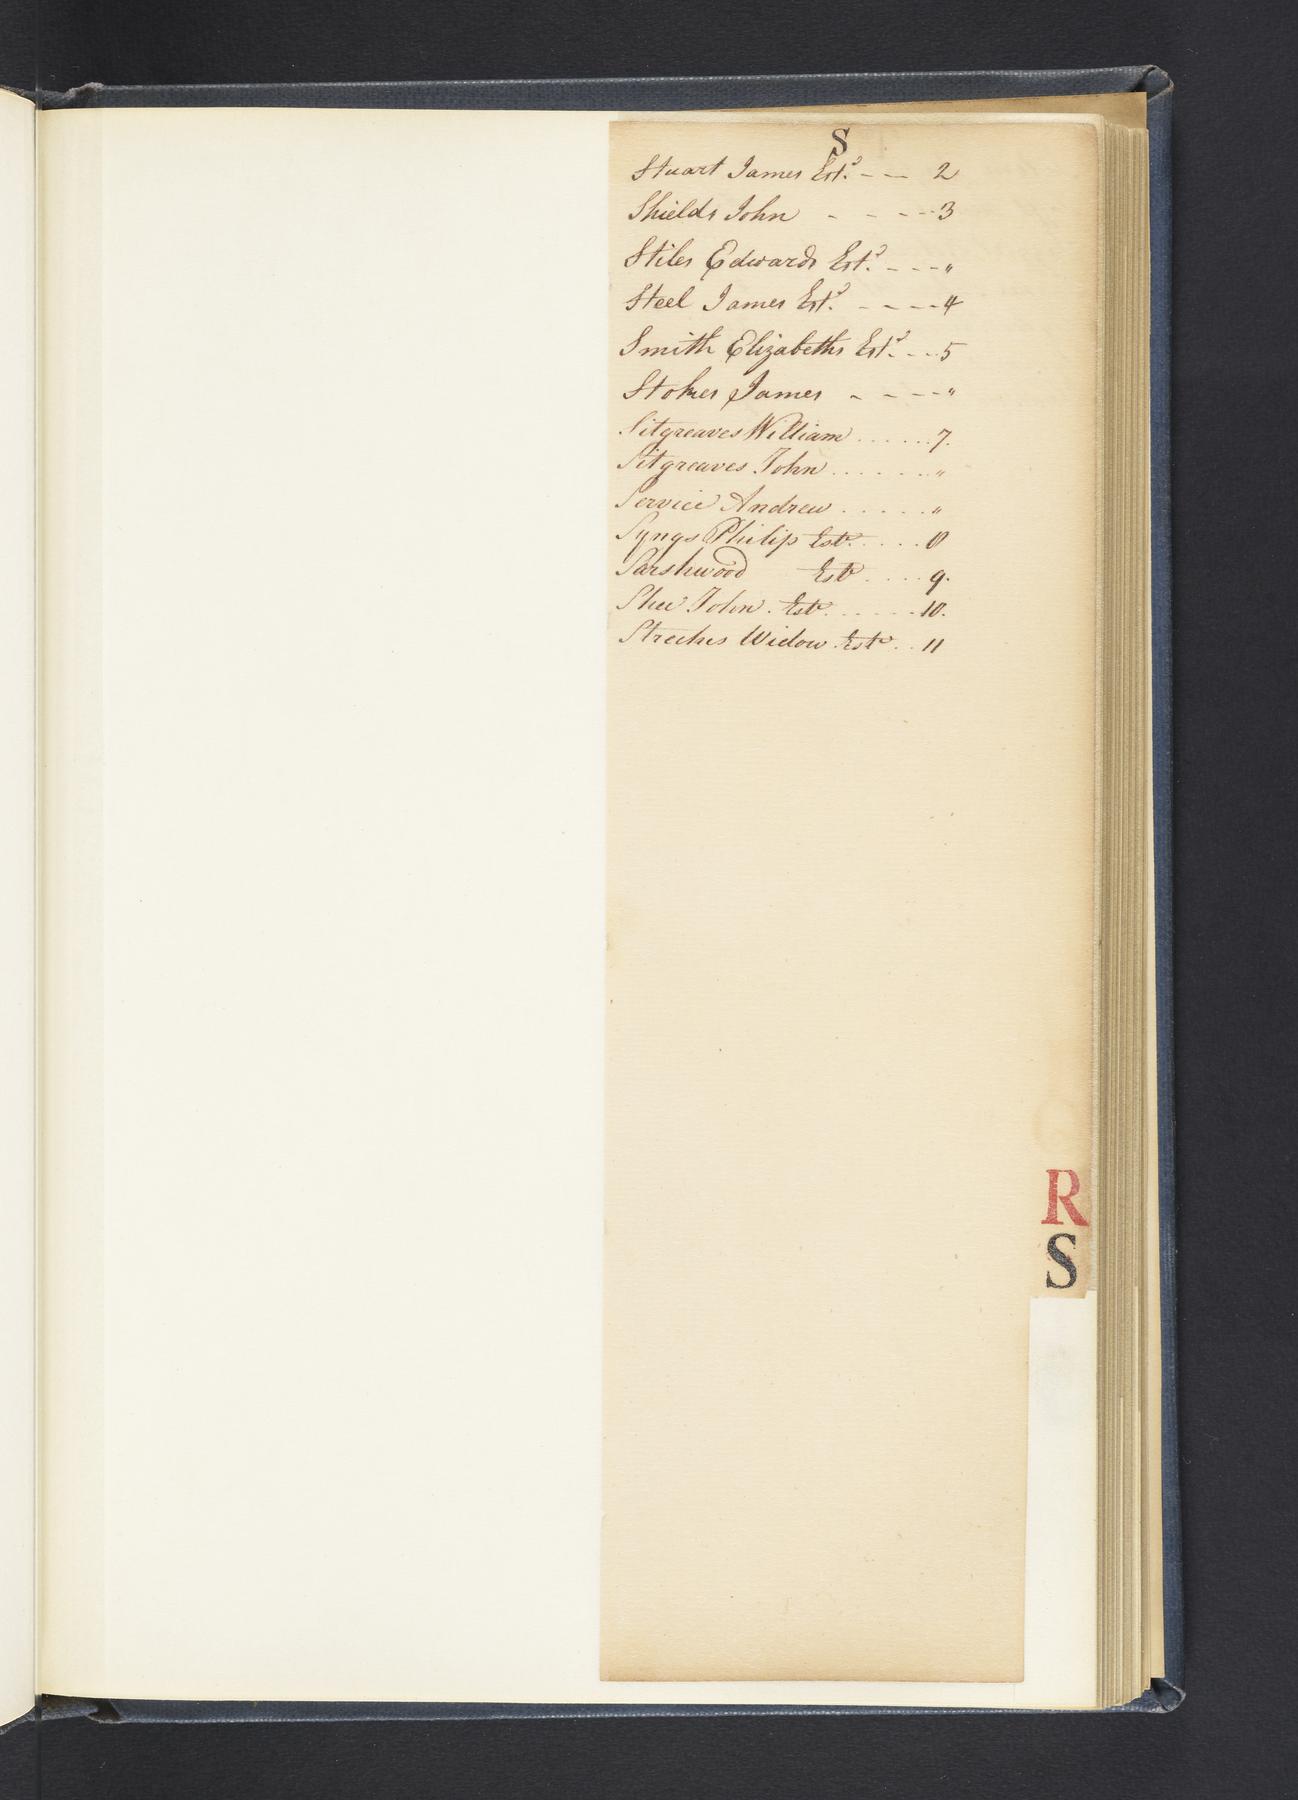 S
Stuart James Est.e - - 2
Shields John - - - - 3
Stiles Edwards Est.e - - - "
Steel James Est.e - - - - 4
Smith Elizabeths Est.e - - 5
Stokes James - - - - "
Sitgreaves William ...... 7.
Sitgreaves John ...... "
Service Andrew ..... "
Syngs Philip Este. .... 8
Este .... 9.
Shee John. Este. ..... 10.
Widow Este .. 11
R
S